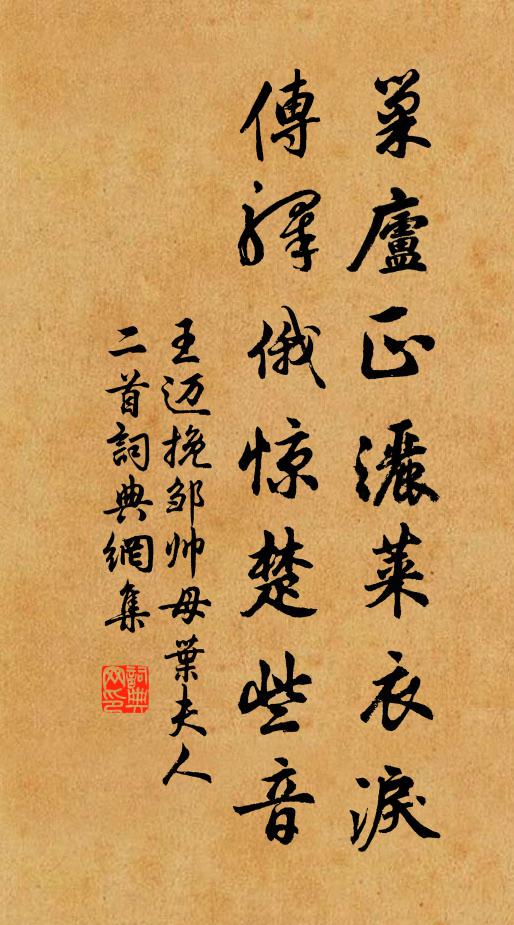 巢廬正灑莱衣淚
傳驛俄惊楚些音
王迈挽邹帅母葉夫人
二首詞典網集
詞典
网印